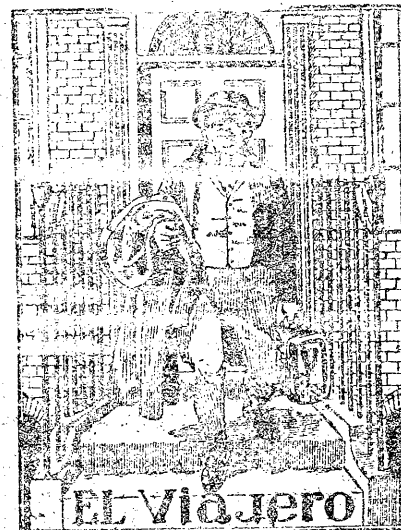 EL Viajero